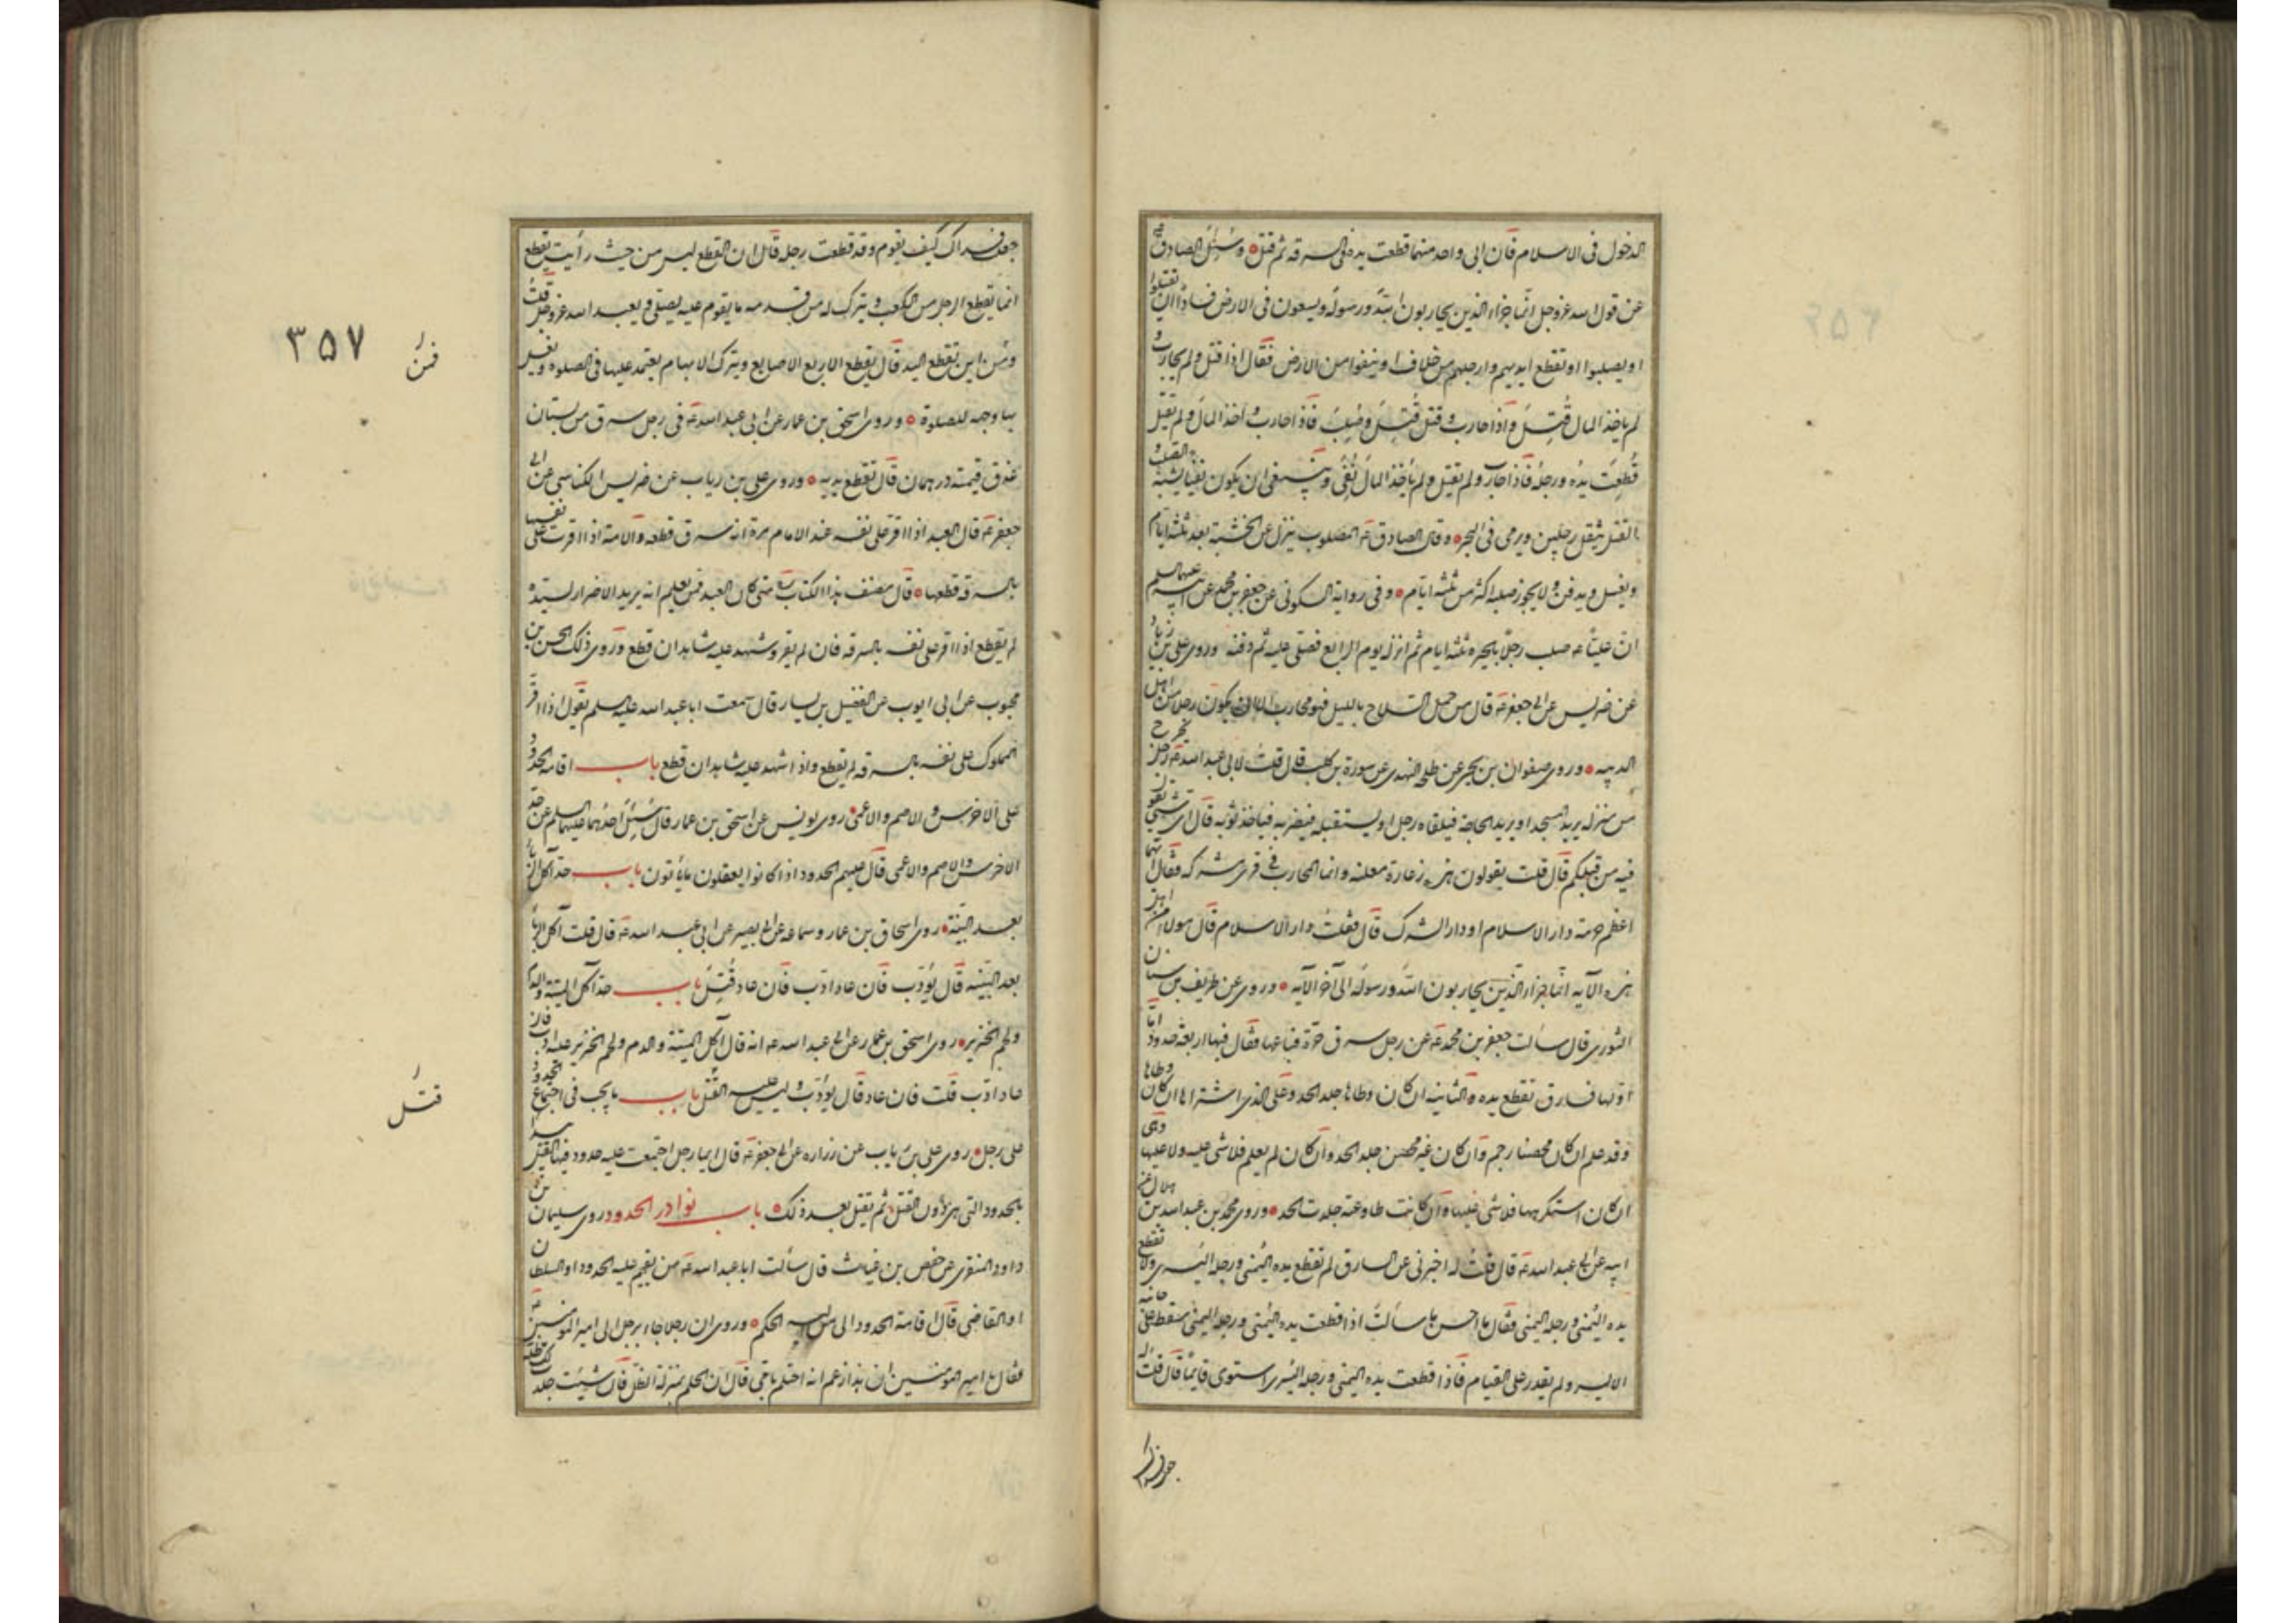 الدخول فى الاسلام فان ابى واحد منهما قطعت يده فى السرقه ثم قتل وسُئِل الصادق عه
عن قول الله عزوجل انّما جزاء الذين يحاربون الله ورسوله ويسعون فى الارض فسادًا ان يقتلوا
او يصلبوا او تقطع ايديهم وارجلهم من خلاف او ينفوا من الارض فقال اذا قتل ولم يحارب و
لم ياخذ المال قُتِلَ واذا حارب و قتل قُتِلَ وصُلِبَ فاذا حارب و اخذ المال ولم يقتل
قُطِعَت يدُه ورجلُه فاذا حارب ولم يقتل ولم يأخذ المال نُفِىَ وينبغى ان يكون نفيًا يشبه الصلب و
القتل يثقل رجلين ويرمى فى البحر وقال الصادق عه المصلوب ينزل عن الخشبة بعد ثلثه ايام
ويغسل ويدفن ولا يجوز صلبه اكثر من ثلثه ايام وفى رواية السكونى عن جعفر بن محمد عن ابيه عليهما السلم
انّ عليّا عه صلب رجلًا بالحيره ثلثه ايام ثم انزله يوم الرابع فصلى عليه ثم دفنه وروى على بن رياب
عن ضريس عن ابى جعفر عه قال من حمل السلاح بالليل فهو محارب الا ان يكون رجلا ليس من اهل
الريبه وروى صفوان بن يحيى عن طلحه النهدى عن سورة بن كليب قال قلت لابى عبد الله عه رجل يخرج
من منزله يريد المسجد او يريد الحاجه فيلقاه رجل او يستقبله فيضربه فياخذ ثوبه قال اى شىء يقول
فيه من قبلكم قال قلت يقولون هذه زعارة معلنه وانما المحارب فى قرى مشركه فقال ايهما
اعظم حرمة دار الاسلام او دار الشرك قال فقلت دار الاسلام قال هولاء من اهل
هذه الآيه انّما جزاء الّذين يحاربون الله ورسوله الى آخر الآيه وروى عن طريف بن سنان
الثورى قال سالت جعفر بن محمد عه عن رجل سرق حرّة فباعها فقال فيها اربعه حدود امّا
اوّلها فسارق تقطع يده والثانيه ان كان وطاها جلد الحد وعلى الذى اشترا ها ان كان وطاها
وقد علم ان كان محصنا رجم وان كان غير محصن جلد الحد وان كان لم يعلم فلا شى عليه ولا عليها وهى
ان كان استكرهها فلا شى عليها وان كانت طاوعته جلدت الحد وروى محمد بن عبد الله بن هلال عن
ابيه عن ابى عبد الله عه قال قلت له اخبرنى عن السارق لم تقطع يده اليُمنى ورجله اليسرى ولا تقطع
يده اليُمنى ورجله اليُمنى فقال ما احسن ما سالت اذا قطعت يده اليمنى ورجله اليمنى سقط على جانبه
الايسر ولم يقدر على القيام فاذا قطعت يده اليمنى ورجله اليُسرى استوى قايمًا قال قلت له
جعلت فداك
جعلت فداك كيف يقوم وقد قطعت رجله قال ان القطع ليس من حيث رأيت يقطع
انما يقطع الرجل من الكعب و يترك له من قدمه ما يقوم عليه يصلى و يعبد الله عزوجل قلت
ومن اين تقطع اليد قال يقطع الاربع الاصابع ويترك الابهام يعتمد عليها فى الصلوة ويغسل
بها وجهه للصلوة وروى اسحق بن عمار عن ابى عبد الله عه فى رجل سرق من بستان
عذق قيمته درهمان قال تقطع يديه وروى على بن رياب عن ضريس الكناسى عن ابى
جعفر عه قال العبد اذا اقرّ على نفسه عند الامام مرة انه سرق قطعه والامة اذا اقرت على نفسها
بالسرقه قطعها قال مصنف هذا الكتاب ره متى كان العبد ممن يعلم انه يريد الاضرار لسيده
لم يقطع اذا اقر على نفسه بالسرقه فان لم يقر وشهد عليه شاهدان قطع وروى ذلك الحسن بن
محبوب عن ابى ايوب عن الفضيل بن يسار قال سمعت ابا عبد الله عليه السلم يقول اذا اقرّ
المملوك على نفسه بالسرقه لم يقطع واذا شهد عليه شاهدان قطع باب اقامه الحدود
على الاخرس و الاصم والاعمى روى يونس عن اسحق بن عمار قال سُئِلَ احدُهما عليهما السلم عن حد
الاخرس والاصم والاعمى قال عليهم الحدود اذا كانوا يعقلون ما يأتون باب حد آكل الربا
بعد البيّنة روى اسحاق بن عمار وسماعه عن ابى بصير عن ابى عبد الله عه قال قلت آكل الربا
بعد البيّنه قال يُؤدَّب فان عاد ادّب فان عاد قُتِلَ باب حد آكل الميتة والدم
ولحم الخنزير روى اسحق بن عمار عن ابى عبد الله عه انه قال آكل الميتة والدم ولحم الخنزير عليه ادب فان
عاد ادّب قلت فان عاد قال يُؤدَّب و ليس عليه القتل باب ما يجب فى اجتماع الحدود
على رجل روى على بن رياب عن زراره عن ابى جعفر عه قال ايما رجل اجتمعت عليه حدود فيها القتل يبدا
بالحدود التى هى دون القتل ثم يقتل بعد ذلك باب نوادر الحدود روى سليمان بن
داود المنقرى عن حفص بن غياث قال سألت ابا عبد الله عه من يقيم عليه الحدود او السلطان
او القاضى قال اقامة الحدود الى من اليه الحكم وروى ان رجلا جاء برجل الى امير المومنين عه
فقال يا امير المؤمنين ان هذا زعم انه احتلم بامّى قال ان الحلم بمنزلة الظل فان شئت جلدت لك ظله
٣٥٧